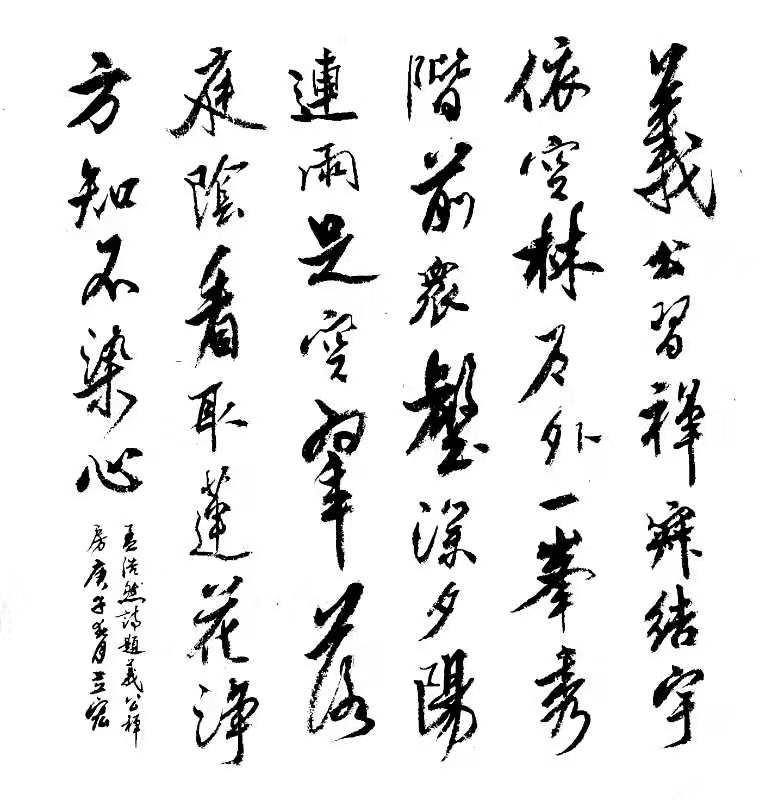 義公習禪寂結宇
依空林戶外一峯秀
階前衆壑深夕陽
連雨足空翠落
庭陰看取蓮花淨
方知不染心
孟浩然詩題義公禪
房庚子春月宏